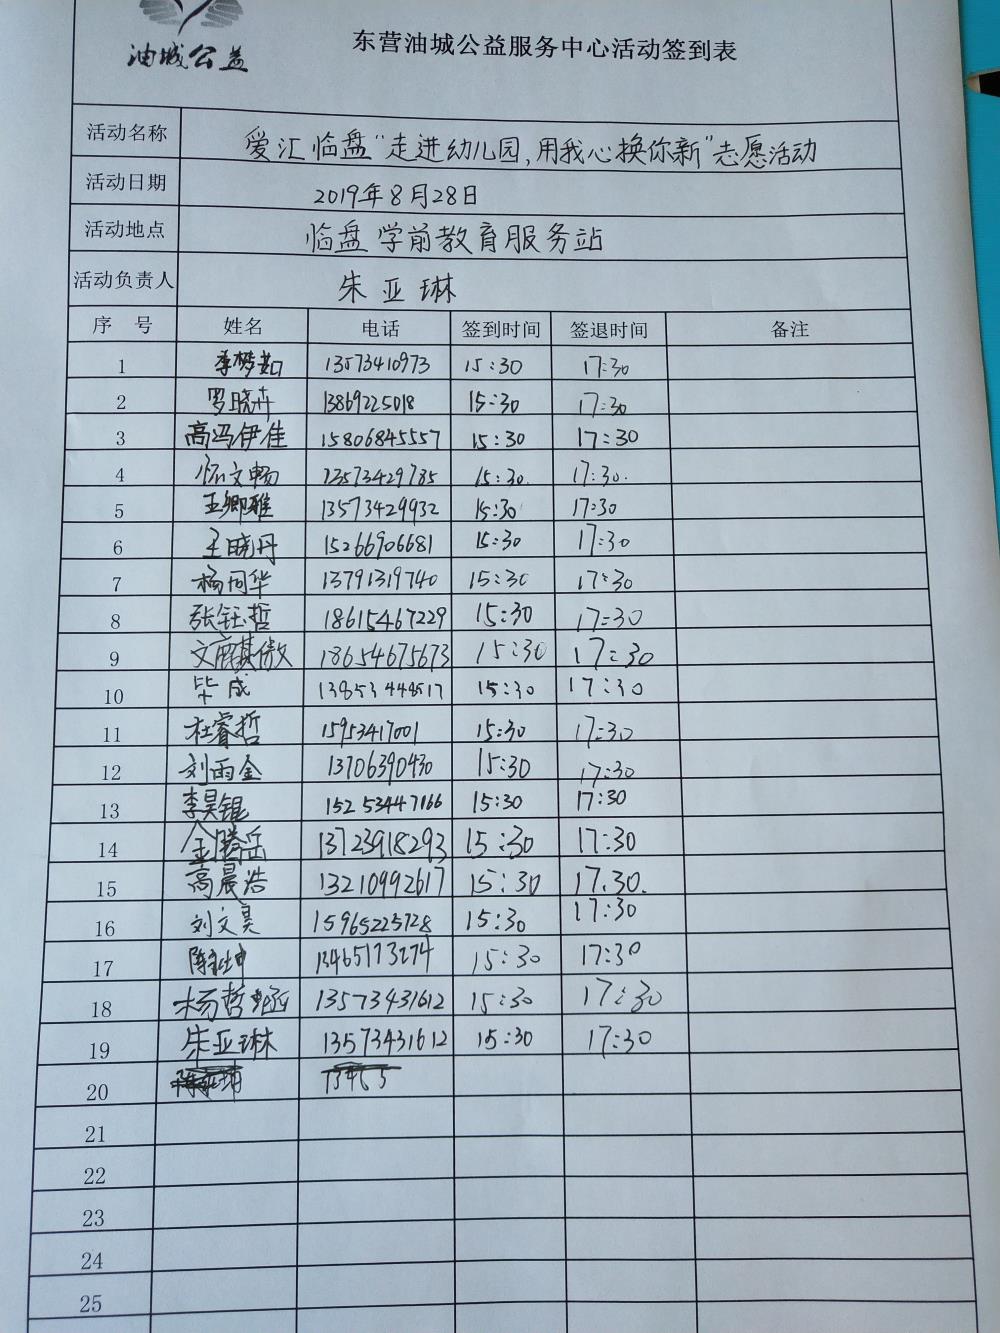 油城公益
东营油城公益服务中心活动签到表
活动名称 爱汇临盘"走进幼儿园,用我心换你新"志愿活动
活动日期 2019年8月28日
活动地点 临盘学前教育服务站
活动负责人 朱亚琳
序号 姓名 电话 签到时间 签退时间 备注
1 季梦茹 13573410973 15:30 17:30
2 罗晓卉 13869225018 15:30 17:30
3 高冯伊佳 15806845557 15:30 17:30
4 怀文畅 13573429785 15:30. 17:30.
5 王卿雅 13573429932 15:30 17:30
6 王晓丹 15266906681 15:30 17:30
7 杨同华 13791319740 15:30 17:30
8 张钰哲 18615467229 15:30 17:30
9 18654675673 15:30 17:30
10 毕成 13853448517 15:30 17:30
11 杜睿哲 15953417001 15:30 17:30
12 刘雨金 13706390430 15:30 17:30
13 李昊锟 15253447166 15:30 17:30
14 金腾岳 13723918293 15:30 17:30
15 高晨浩 13210992617 15:30 17.30.
16 刘文昊 15965225728 15:30 17:30
17 13465173274 15:30 17:30
18 杨哲涵 13573431612 15:30 17:30
19 朱亚琳 13573431612 15:30 17:30
20
21
22
23
24
25